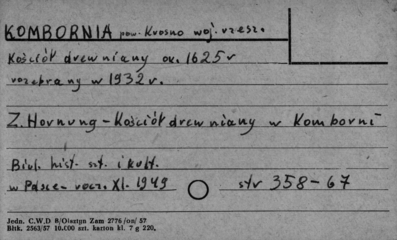 KOMBORNIA pow. Krosno woj. rzesz.
Kościół drewniany ok. 1625 r
rozebrany w 1932 r.
Z. Hornung - Kościół drewniany w Komborni
Biul. hist. szt. i kult.
w Polsce - rocz. XI. 1949 str 358-67
Jedn. C.W.D B/Olsztyn Zam 2776/on/57
Bltk. 2563/57 10.000 szt. karton kl. 7 g 220.